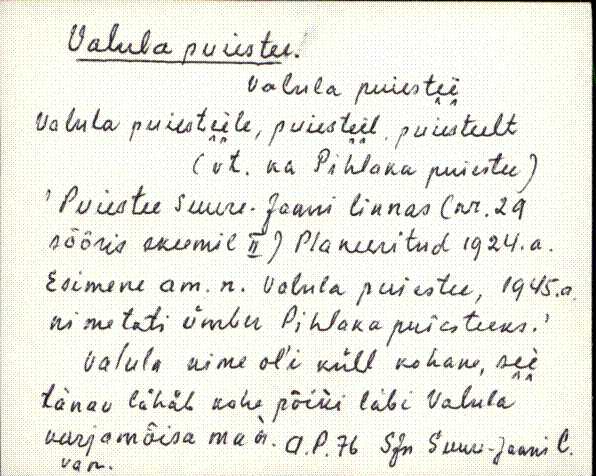 Valula puiestee.
Valula puiestee̬e̬
Valula puieste̬e̬le, puieste̬e̬l, puiesteelt
(vt. ka Pihlaka puiestee)
' Puiestee Suure-Jaani linnas (nr. 29
sõõris skeemil II) Planeeritud 1924. a.
Esimene am. n. Valula puiestee, 1945. a.
nimetati ümber Pihlaka puiesteeks.'
Valula nime ol'i küll kohane, see
tänav lähäb kohe põiki läbi Valula
karjamõisa maa. A.P. 76 SJn Suure-Jaani l.
van.